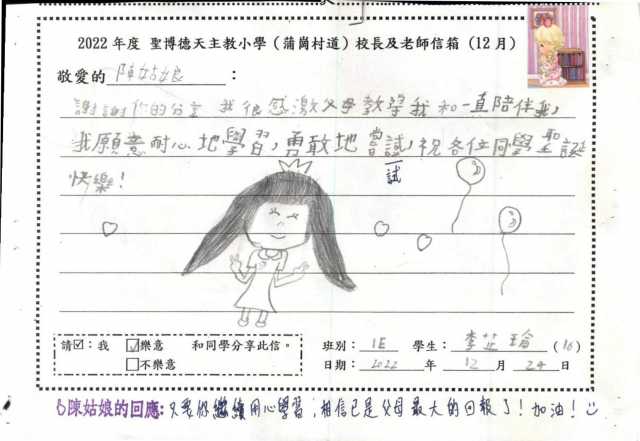 2022 年度 聖博德天主教小學（蒲崗村道）校長及老師信箱（12 月）
敬愛的 陳姑娘 ：
謝謝你的分享 我很感激父母教導我和一直陪伴我，
我願意耐心地學習，勇敢地嘗試，祝各位同學聖誕
試
快樂！
請☑：我 ☑樂意 和同學分享此信。
☐不樂意
班別： 1E 學生： 李芷瑜 （16）
日期： 2022 年 12 月 24 日
陳姑娘的回應: 只要你繼續用心學習，相信已是父母最大的回報了！加油！